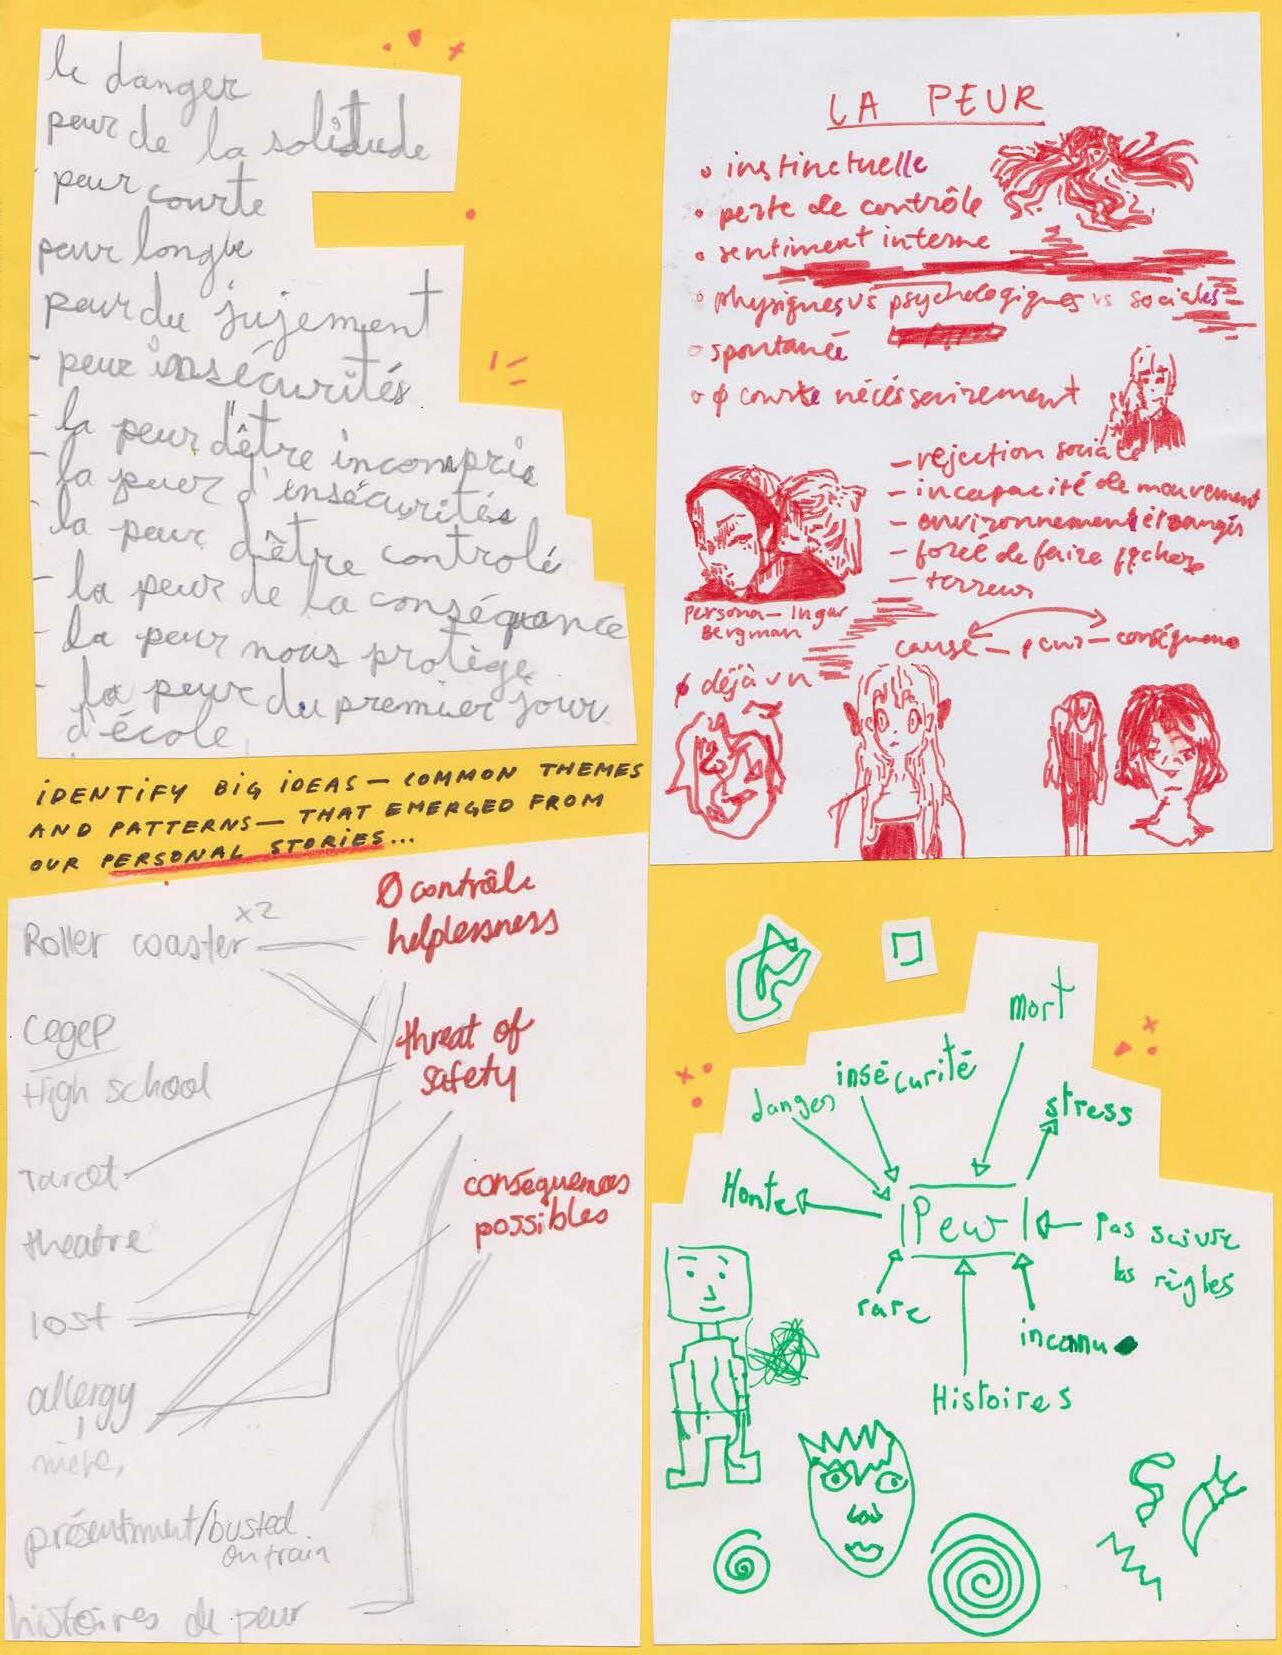 le danger
peur de la solitude
peur courte
peur longue
peur du jujement
- peur insécurités
- la peur d'être incompris
- la peur d'insécurités
- la peur d'être controlé
- la peur de la conséquance
- la peur nous protège
- la peur du premier jour
d'école
IDENTIFY BIG IDEAS — COMMON THEMES
AND PATTERNS — THAT EMERGED FROM
OUR PERSONAL STORIES...
Roller coaster x2
Cegep
High school
theatre
lost
allergy
présentiment/busted
on train
histoires de peur
Ø contrôle
helplessness
threat of
safety
conséquences
possibles
LA PEUR
instinctuelle
perte de contrôle
sentiment interne
physiques vs psychologiques vs sociales
spontané
ø courte nécéssairement
- rejection sociale
- incapacité de mouvement
- environnement étranger
- forcé de faire
- terreur
Persona - Ingar
Bergman
cause — peur — conséquence
ø déjà vu
mort
insécurité
danger
stress
Honte
Peur
Pas suivre
les règles
rare
inconnu
Histoires